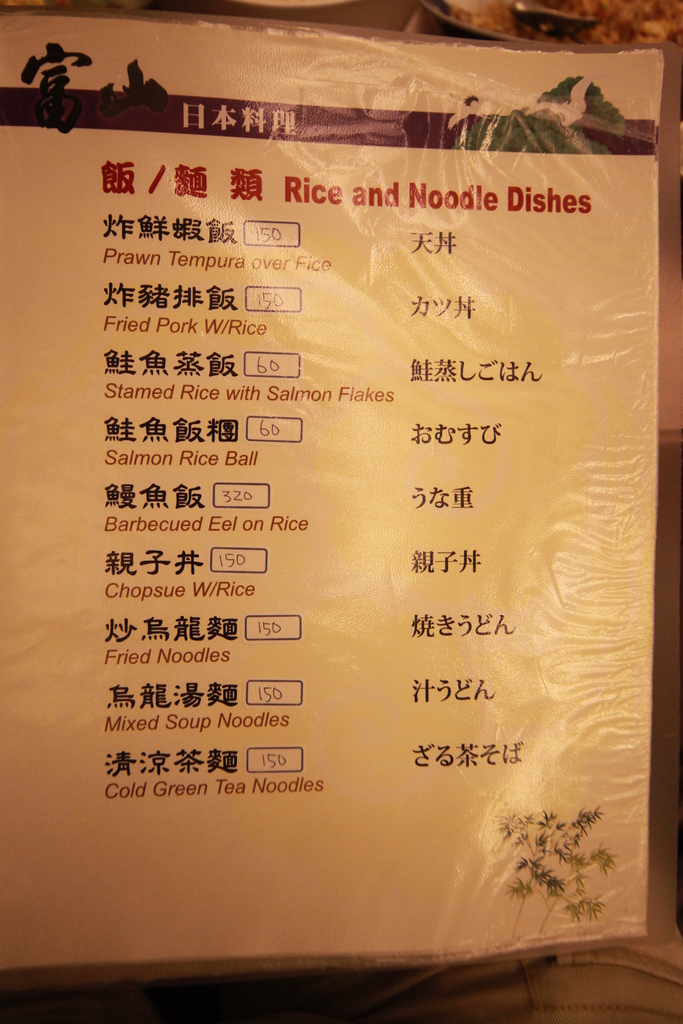 富山 日本料理
飯/麵 類 Rice and Noodle Dishes
炸鮮蝦飯 150 天丼
Prawn Tempura over Fice
炸豬排飯 150 カツ丼
Fried Pork W/Rice
鮭魚蒸飯 60 鮭蒸しごはん
Stamed Rice with Salmon Flakes
鮭魚飯糰 60 おむすび
Salmon Rice Ball
鰻魚飯 320 うな重
Barbecued Eel on Rice
親子丼 150 親子丼
Chopsue W/Rice
炒烏龍麵 150 焼きうどん
Fried Noodles
烏龍湯麵 150 汁うどん
Mixed Soup Noodles
清涼茶麵 150 ざる茶そば
Cold Green Tea Noodles